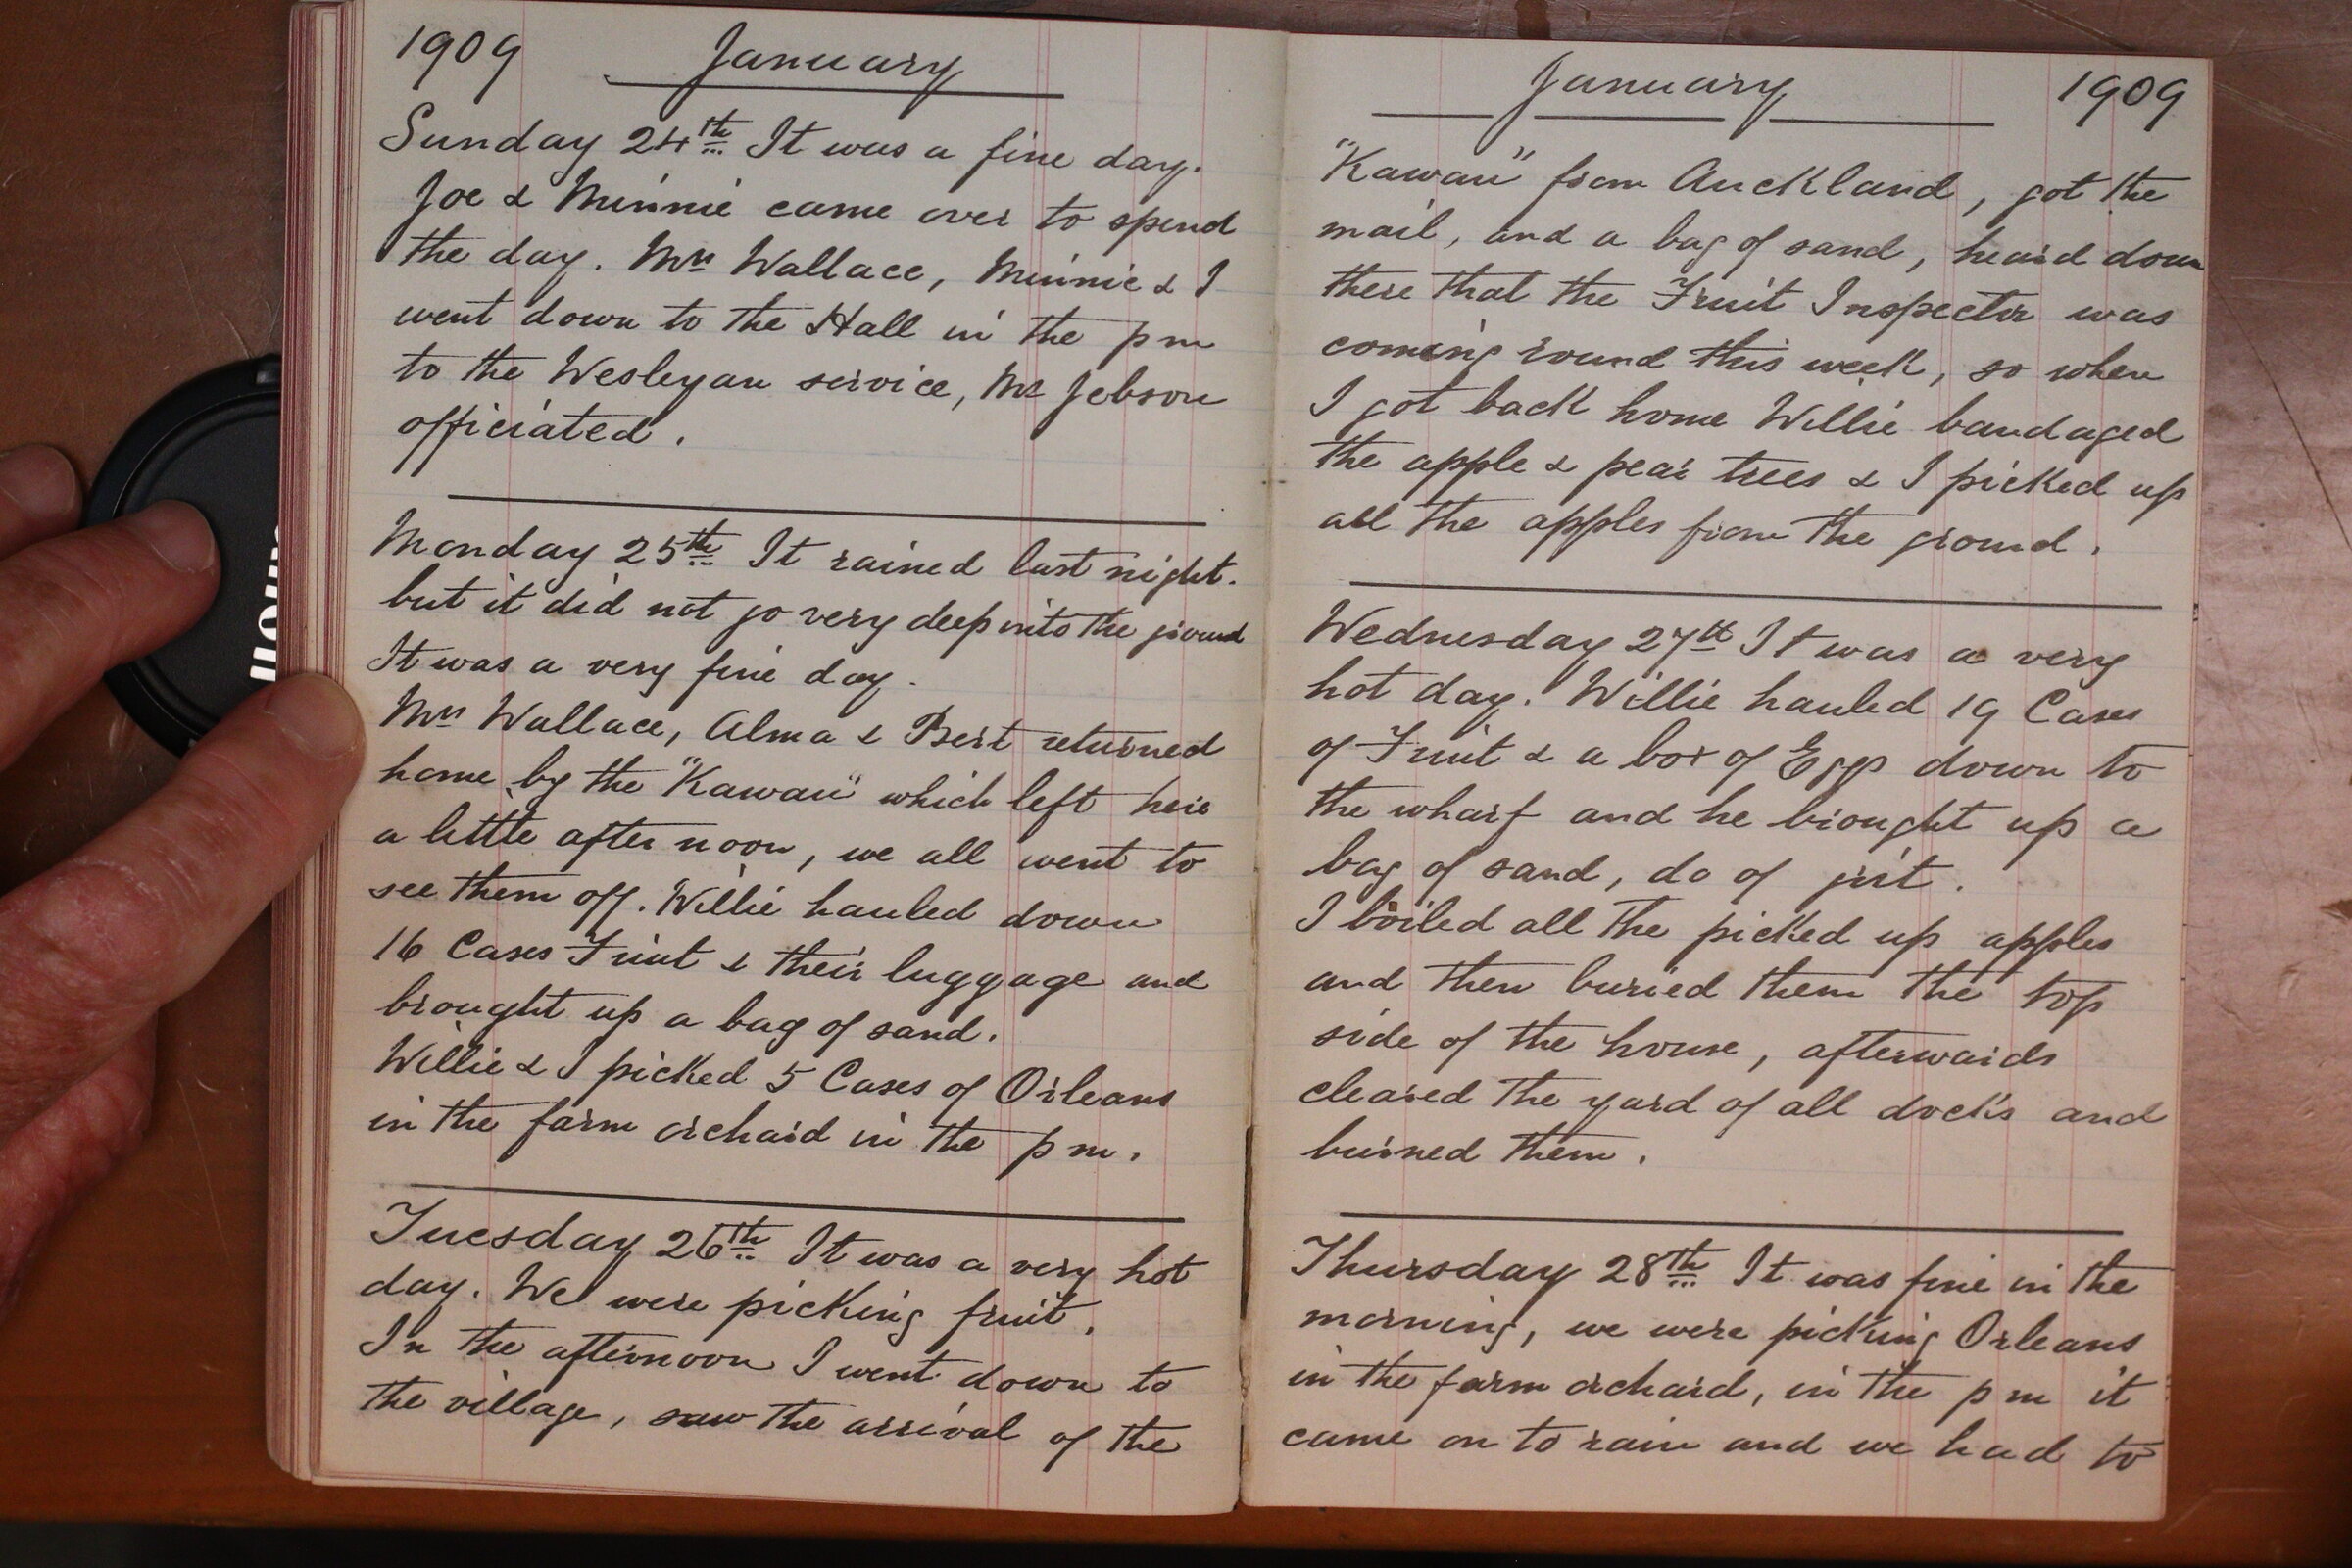 1909 January
Sunday 24th It was a fine day.
Joe & Minnie came over to spend
the day. Mrs Wallace, Minnie & I
went down to the Hall in the pm
to the Wesleyan service, Mr Jebson
officiated.
Monday 25th It rained last night.
but it did not go very deep into the ground
It was a very fine day.
Mrs Wallace, Alma & Bert returned
home by the "Kawau" which left here
a little after noon, we all went to
see them off. Willie hauled down
16 Cases Fruit & their luggage and
brought up a bag of sand.
Willie & I picked 5 Cases of Orleans
in the farm orchard in the pm.
Tuesday 26th It was a very hot
day. We were picking fruit.
In the afternoon I went down to
the village, saw the arrival of the
January 1909
"Kawau" from Auckland, got the
mail, and a bag of sand, heard down
there that the Fruit Inspector was
coming round this week, so when
I got back home Willie bandaged
the apple & pear trees & I picked up
all the apples from the ground.
Wednesday 27th It was a very
hot day. Willie hauled 19 Cases
of Fruit & a box of Eggs down to
the wharf and he brought up a
bag of sand, do of grit.
I boiled all the picked up apples
and then buried them the top
side of the house, afterwards
cleared the yard of all docks and
burned them.
Thursday 28th It was fine in the
morning, we were picking Orleans
in the farm orchard, in the pm it
came on to rain and we had to